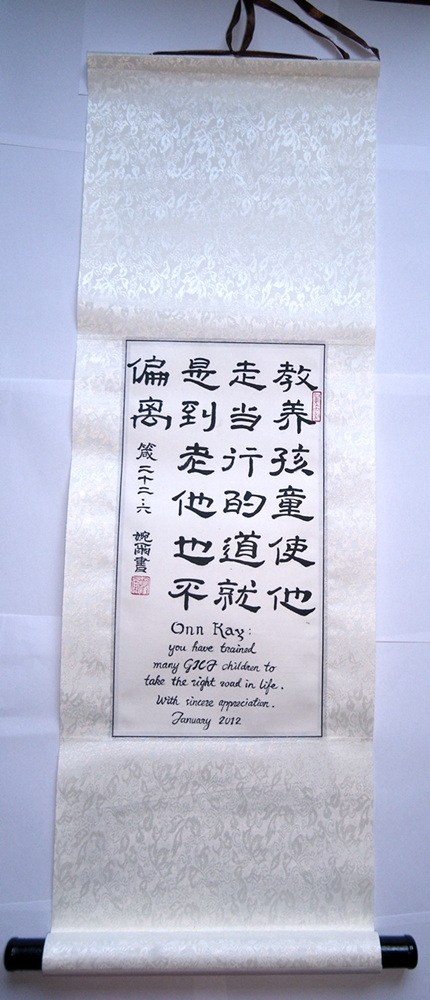 教养孩童使他
走当行的道就
是到老他也不
偏离
箴二十二·六
婉爾書
Onn Kay:
you have trained
many GICF children to
take the right road in life.
With sincere appreciation.
January 2012